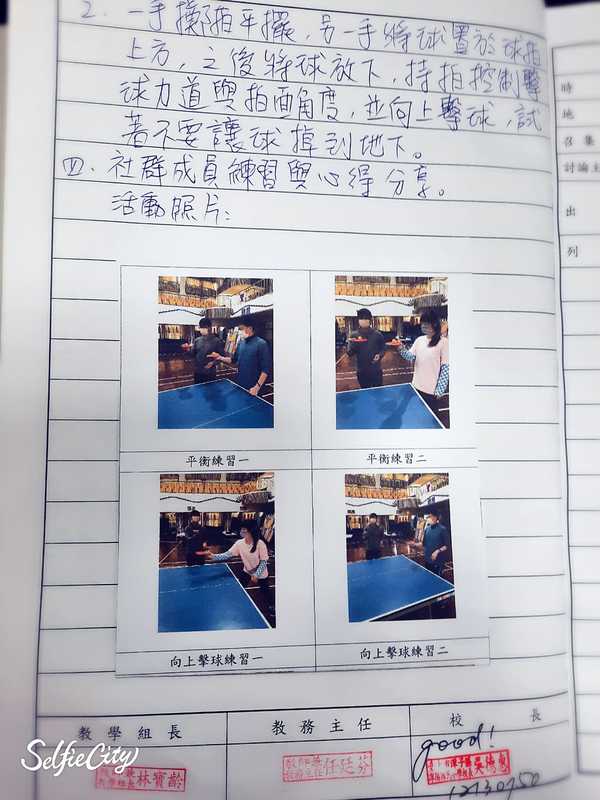 2. 一手握拍平擺,另一手將球置於球拍
上方,之後將球放下,持拍控制擊
球力道與拍面角度,並向上擊球,試
著不要讓球掉到地下。
四.社群成員練習與心得分享。
活動照片:
平衡練習一
平衡練習二
向上擊球練習一
向上擊球練習二
教學組長
教務主任
校長
good!
林寶齡
任廷芬
時
地
召集
討論主
出
列
SelfieCity